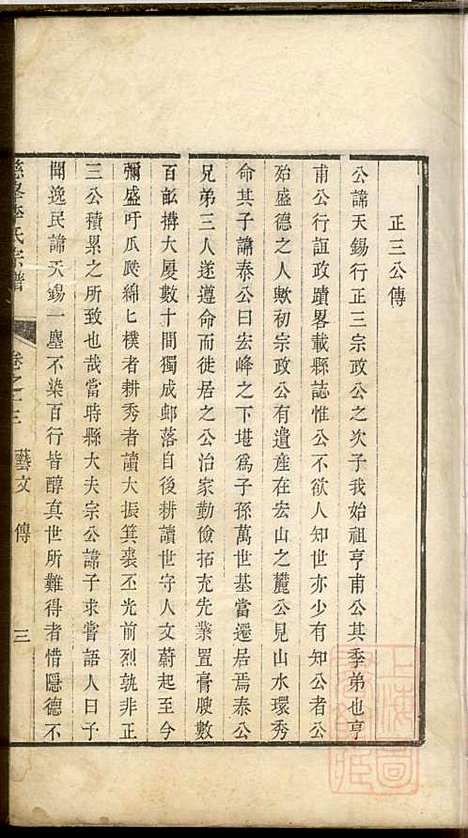 正三公傳
公諱天錫行正三宗政公之次子我始祖亨甫公其季弟也亨
甫公行誼政蹟畧載縣誌惟公不欲人知世亦少有知公者公
殆盛德之人歟初宗政公有遺產在宏山之麓公見山水環秀
命其子諱泰公曰宏峰之下堪爲子孫萬世基當遷居焉泰公
兄弟三人遂遵命而徙居之公治家勤儉拓充先業置膏腴數
百畝搆大厦數十間獨成邨落自後耕讀世守人文蔚起至今
彌盛吁瓜瓞綿匕樸者耕秀者讀大振箕裘丕光前烈孰非正
三公積累之所致也哉當時縣大夫宗公諱子求嘗語人曰子
聞逸民諱天錫一塵不染百行皆醇真世所難得者惜隱德不
氏宗譜
卷之十三
藝文
傳
三
上海圖